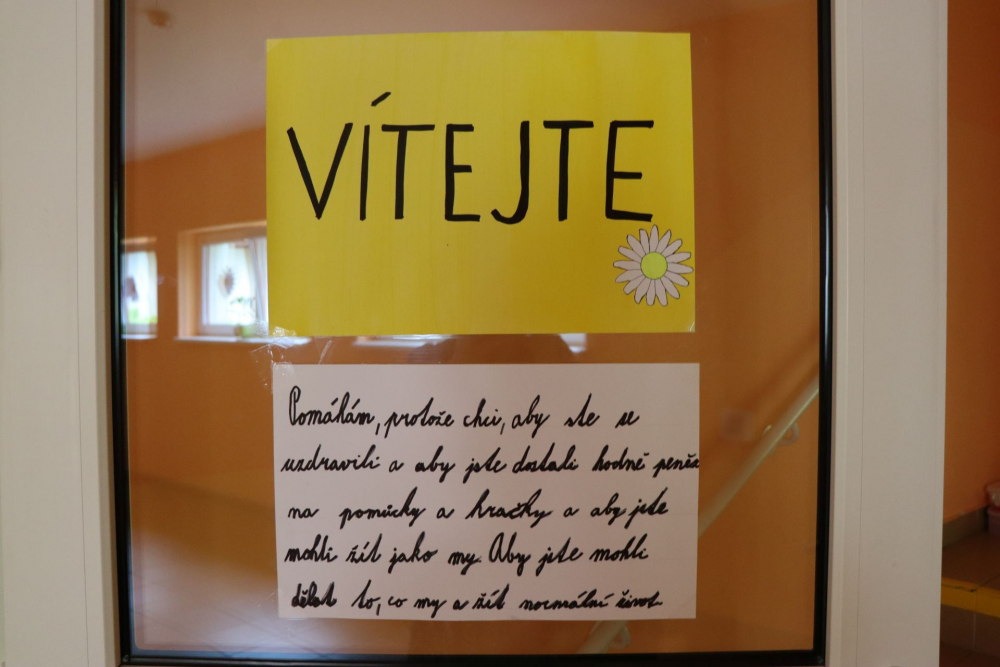 VÍTEJTE
Pomáhám, protože chci, aby ste se
uzdravili a aby jste dostali hodně peněz
na pomůcky a hračky a aby jste
mohli žít jako my. Aby jste mohli
dělat to, co my a žít normální život.